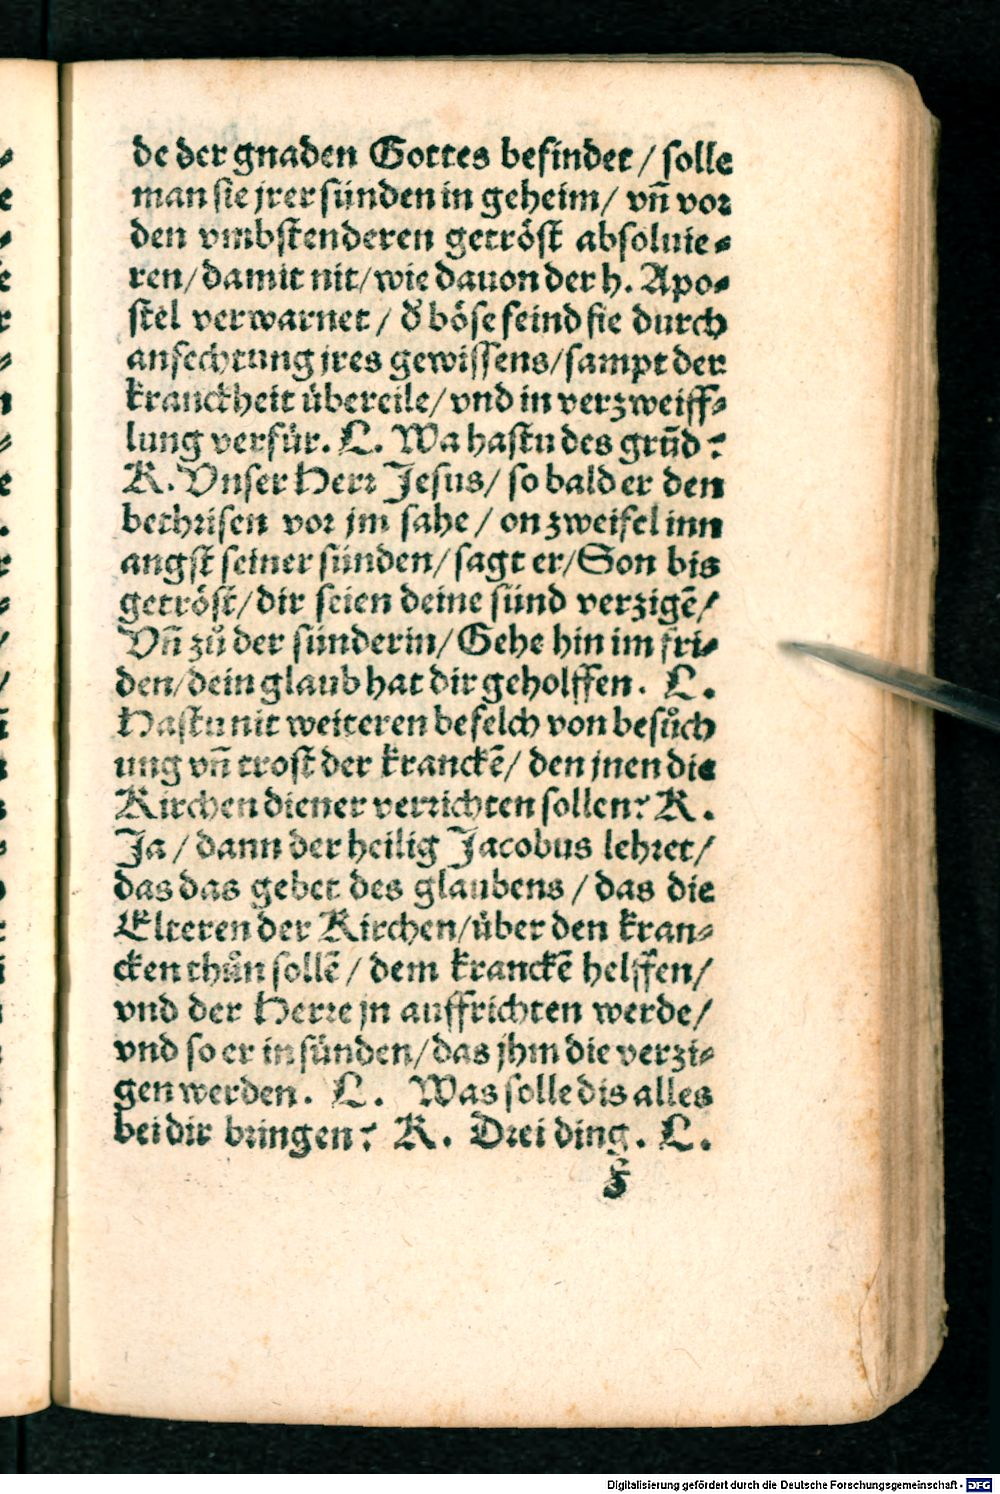 de der gnaden Gottes befindet / solle
man sie jrer sünden in geheim / vñ vor
den vmbstenderen getröst absoluie⸗
ren / damit nit / wie dauon der h. Apo⸗
stel verwarnet / d̕ böse feind sie durch
anfechtung jres gewissens / sampt der
kranckheit übereile / vnd in verzweiff⸗
lung verfür. L. Wa hastu des grũd?
K. Vnser Herr Jesus / so bald er den
bethrisen vor jm sahe / on zweifel inn
angst seiner sünden / sagt er / Son bis
getröst / dir seien deine sünd verzigẽ /
Vñ zů der sünderin / Gehe hin im fri⸗
den / dein glaub hat dir geholffen. L.
Hastu nit weiteren befelch von besůch
ung vñ trost der kranckẽ / den jnen die
Kirchen diener verrichten sollen? K.
Ja / dann der heilig Jacobus lehret /
das das gebet des glaubens / das die
Elteren der Kirchen / über den kran⸗
cken thůn sollẽ / dem kranckẽ helffen /
vnd der Herre jn auffrichten werde /
vnd so er in sünden / das jhm die verzi⸗
gen werden. L. Was solle dis alles
bei dir bringen? K. Drei ding. L.
Digitalisierung gefördert durch die Deutsche Forschungsgemeinschaft - DFG